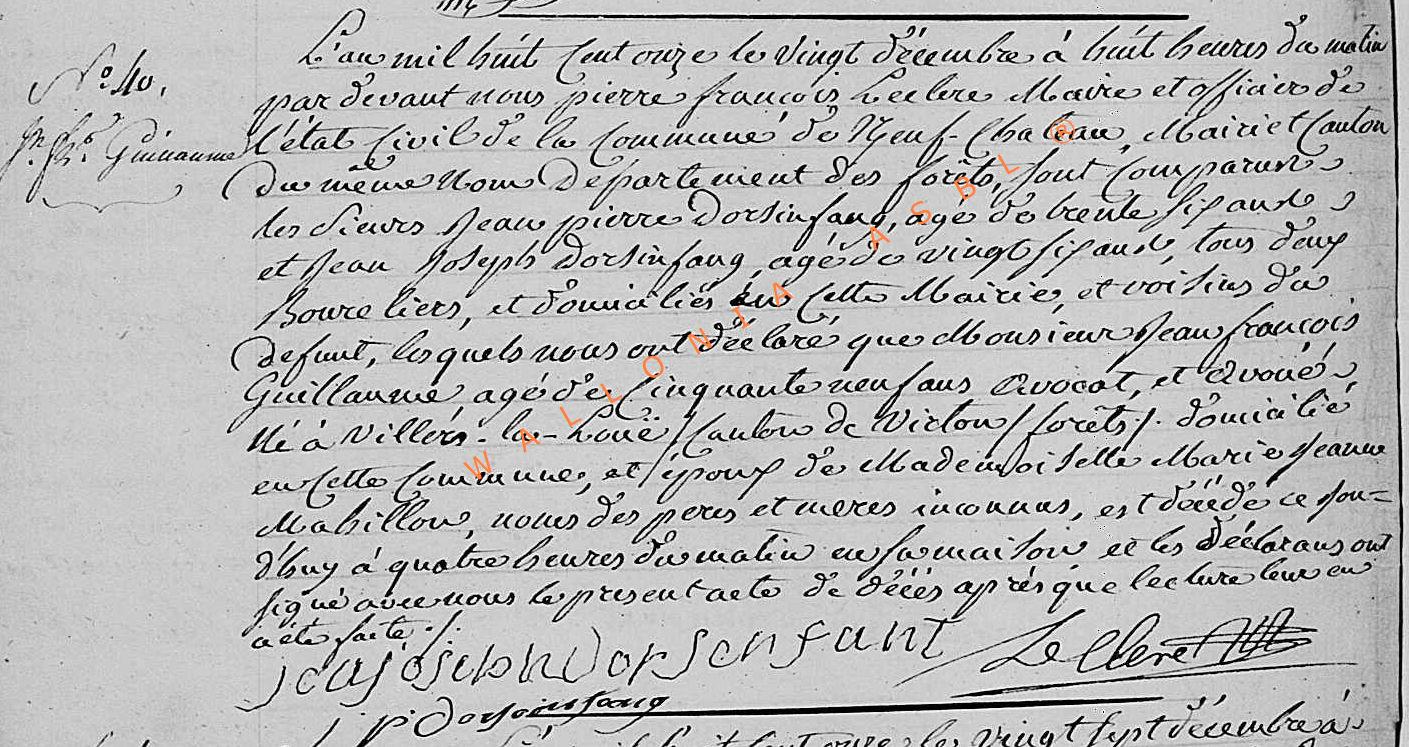 L'an mil huit Cent onze le vingt décembre à huit heures du matin
N.o 40.
par devant nous pierre françois Leclere Maire et officier de
l'état Civil de la Commune de Neuf-Chateau, Mairie et Canton
Jn. fs. Guillaume
du même Nom Département des forêts, sont Comparus
les Sieurs Jean pierre Dorsinfang, agé de trente six ans
et Jean Joseph Dorsinfang, agé de vingt six ans, tous deux
Boureliers, et domiciliés en Cette Mairie, et voisins du
defunt, lesquels nous ont déclaré que Monsieur Jean françois
Guillaume, agé de Cinquante neuf ans Avocat, et Avoué
Né à Villers-la-Loüe / Canton de Virton / forêts /. domicilié
en Cette Commune, et époux de Mademoiselle Marie Jeanne
Mabillon, noms des peres et meres inconnus, est décédé ce Jour=
d'huy à quatre heures du matin en sa maison et les déclarans ont
signé avec nous le present acte de décès après que lecture leur en
a été faite ./.
jeajosephDorsenfant Leclere
j p Dorsinfang
Cent onze le vingt sept décembre à
WALLONIA ASBL ®